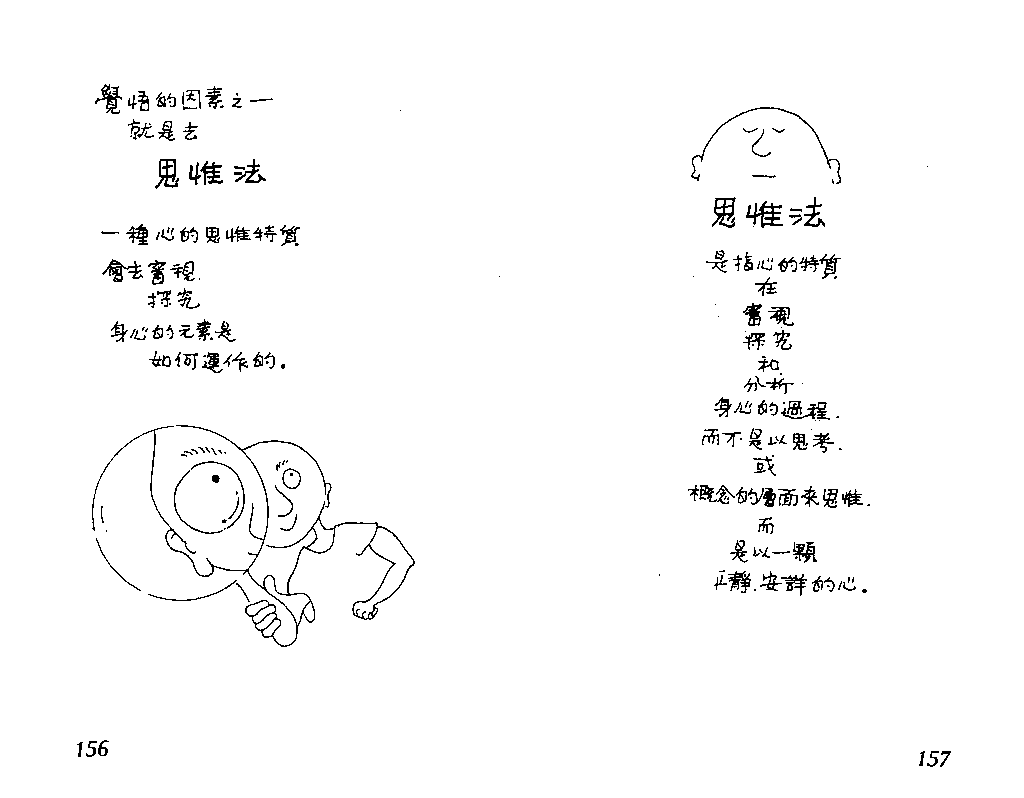 覺悟的因素之一
就是去
思惟法
一種心的思惟特質
會去審視.
探究
身心的元素是
如何運作的。
156
思惟法
是指心的特質
在
審視
探究
和
分析
身心的過程.
而不是以思考.
或
概念的層面來思惟.
而
是以一顆
平靜.安詳的心。
157